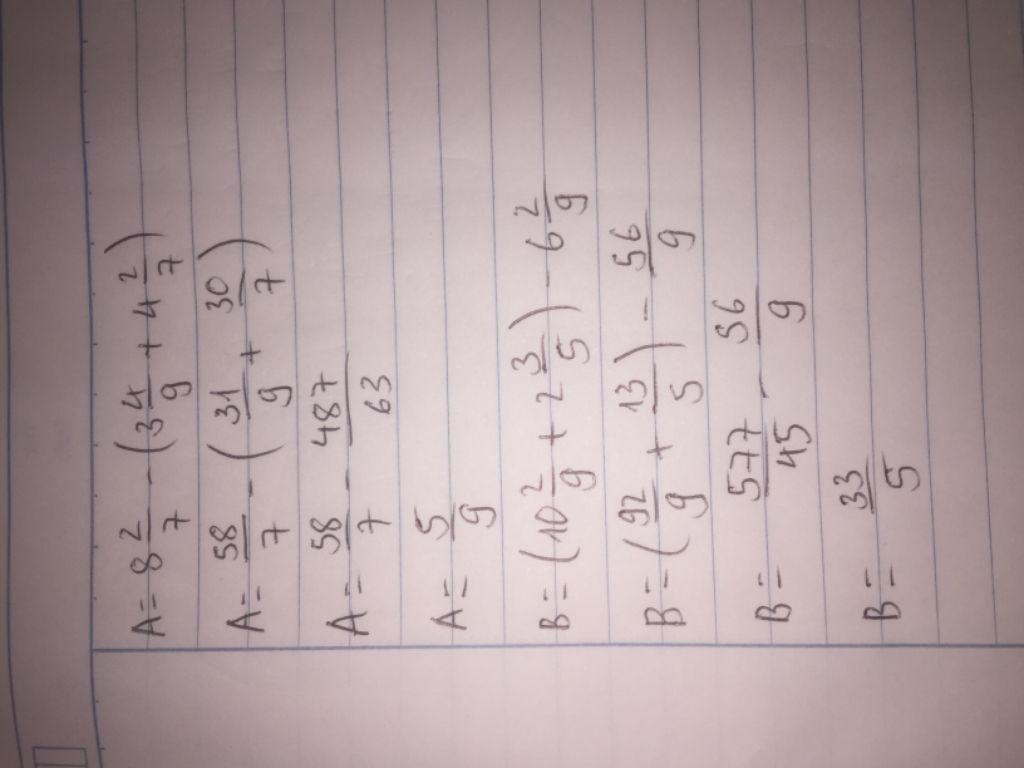 A = 8 2/7 - (3 4/9 + 4 2/7)
A = 58/7 - (31/9 + 30/7)
A = 58/7 - 487/63
A = 5/9
B = (10 2/9 + 2 3/5) - 6 2/9
B = (92/9 + 13/5) - 56/9
B = 577/45 - 56/9
B = 33/5